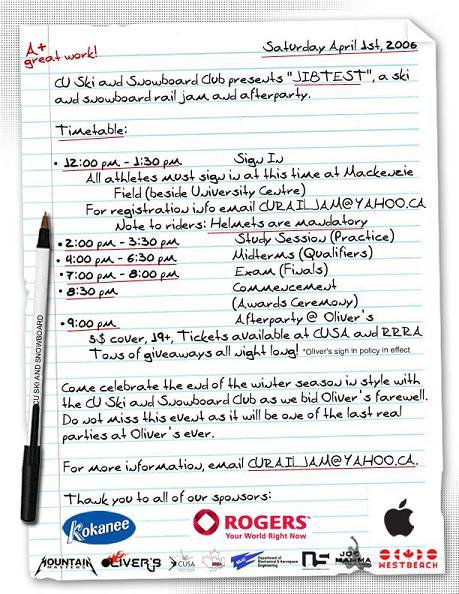 A+
great work!
Saturday April 1st, 2006
CU Ski and Snowboard Club presents "JIBTEST", a ski
and snowboard rail jam and afterparty.
Timetable:
• 12:00 pm - 1:30 pm Sign In
All athletes must sign in at this time at Mackenzie
Field (beside University Centre)
For registration info email CURAILJAM@YAHOO.CA
Note to riders: Helmets are mandatory
• 2:00 pm - 3:30 pm Study Session (Practice)
• 4:00 pm - 6:30 pm Midterms (Qualifiers)
• 7:00 pm - 8:00 pm Exam (Finals)
• 8:30 pm Commencement
(Awards Ceremony)
• 9:00 pm Afterparty @ Oliver's
5$ cover, 19+, Tickets available at CUSA and RRRA
Tons of giveaways all night long! *Oliver's sign in policy in effect
CU SKI AND SNOWBOARD
Come celebrate the end of the winter season in style with
the CU Ski and Snowboard Club as we bid Oliver's farewell.
Do not miss this event as it will be one of the last real
parties at Oliver's ever.
For more information, email CURAILJAM@YAHOO.CA.
Thank you to all of our sponsors:
Kokanee
ROGERS™
Your World Right Now
MOUNTAIN
OLIVER'S
CUSA
Department of
Mechanical & Aerospace
Engineering
JOE
MAMMA
WESTBEACH